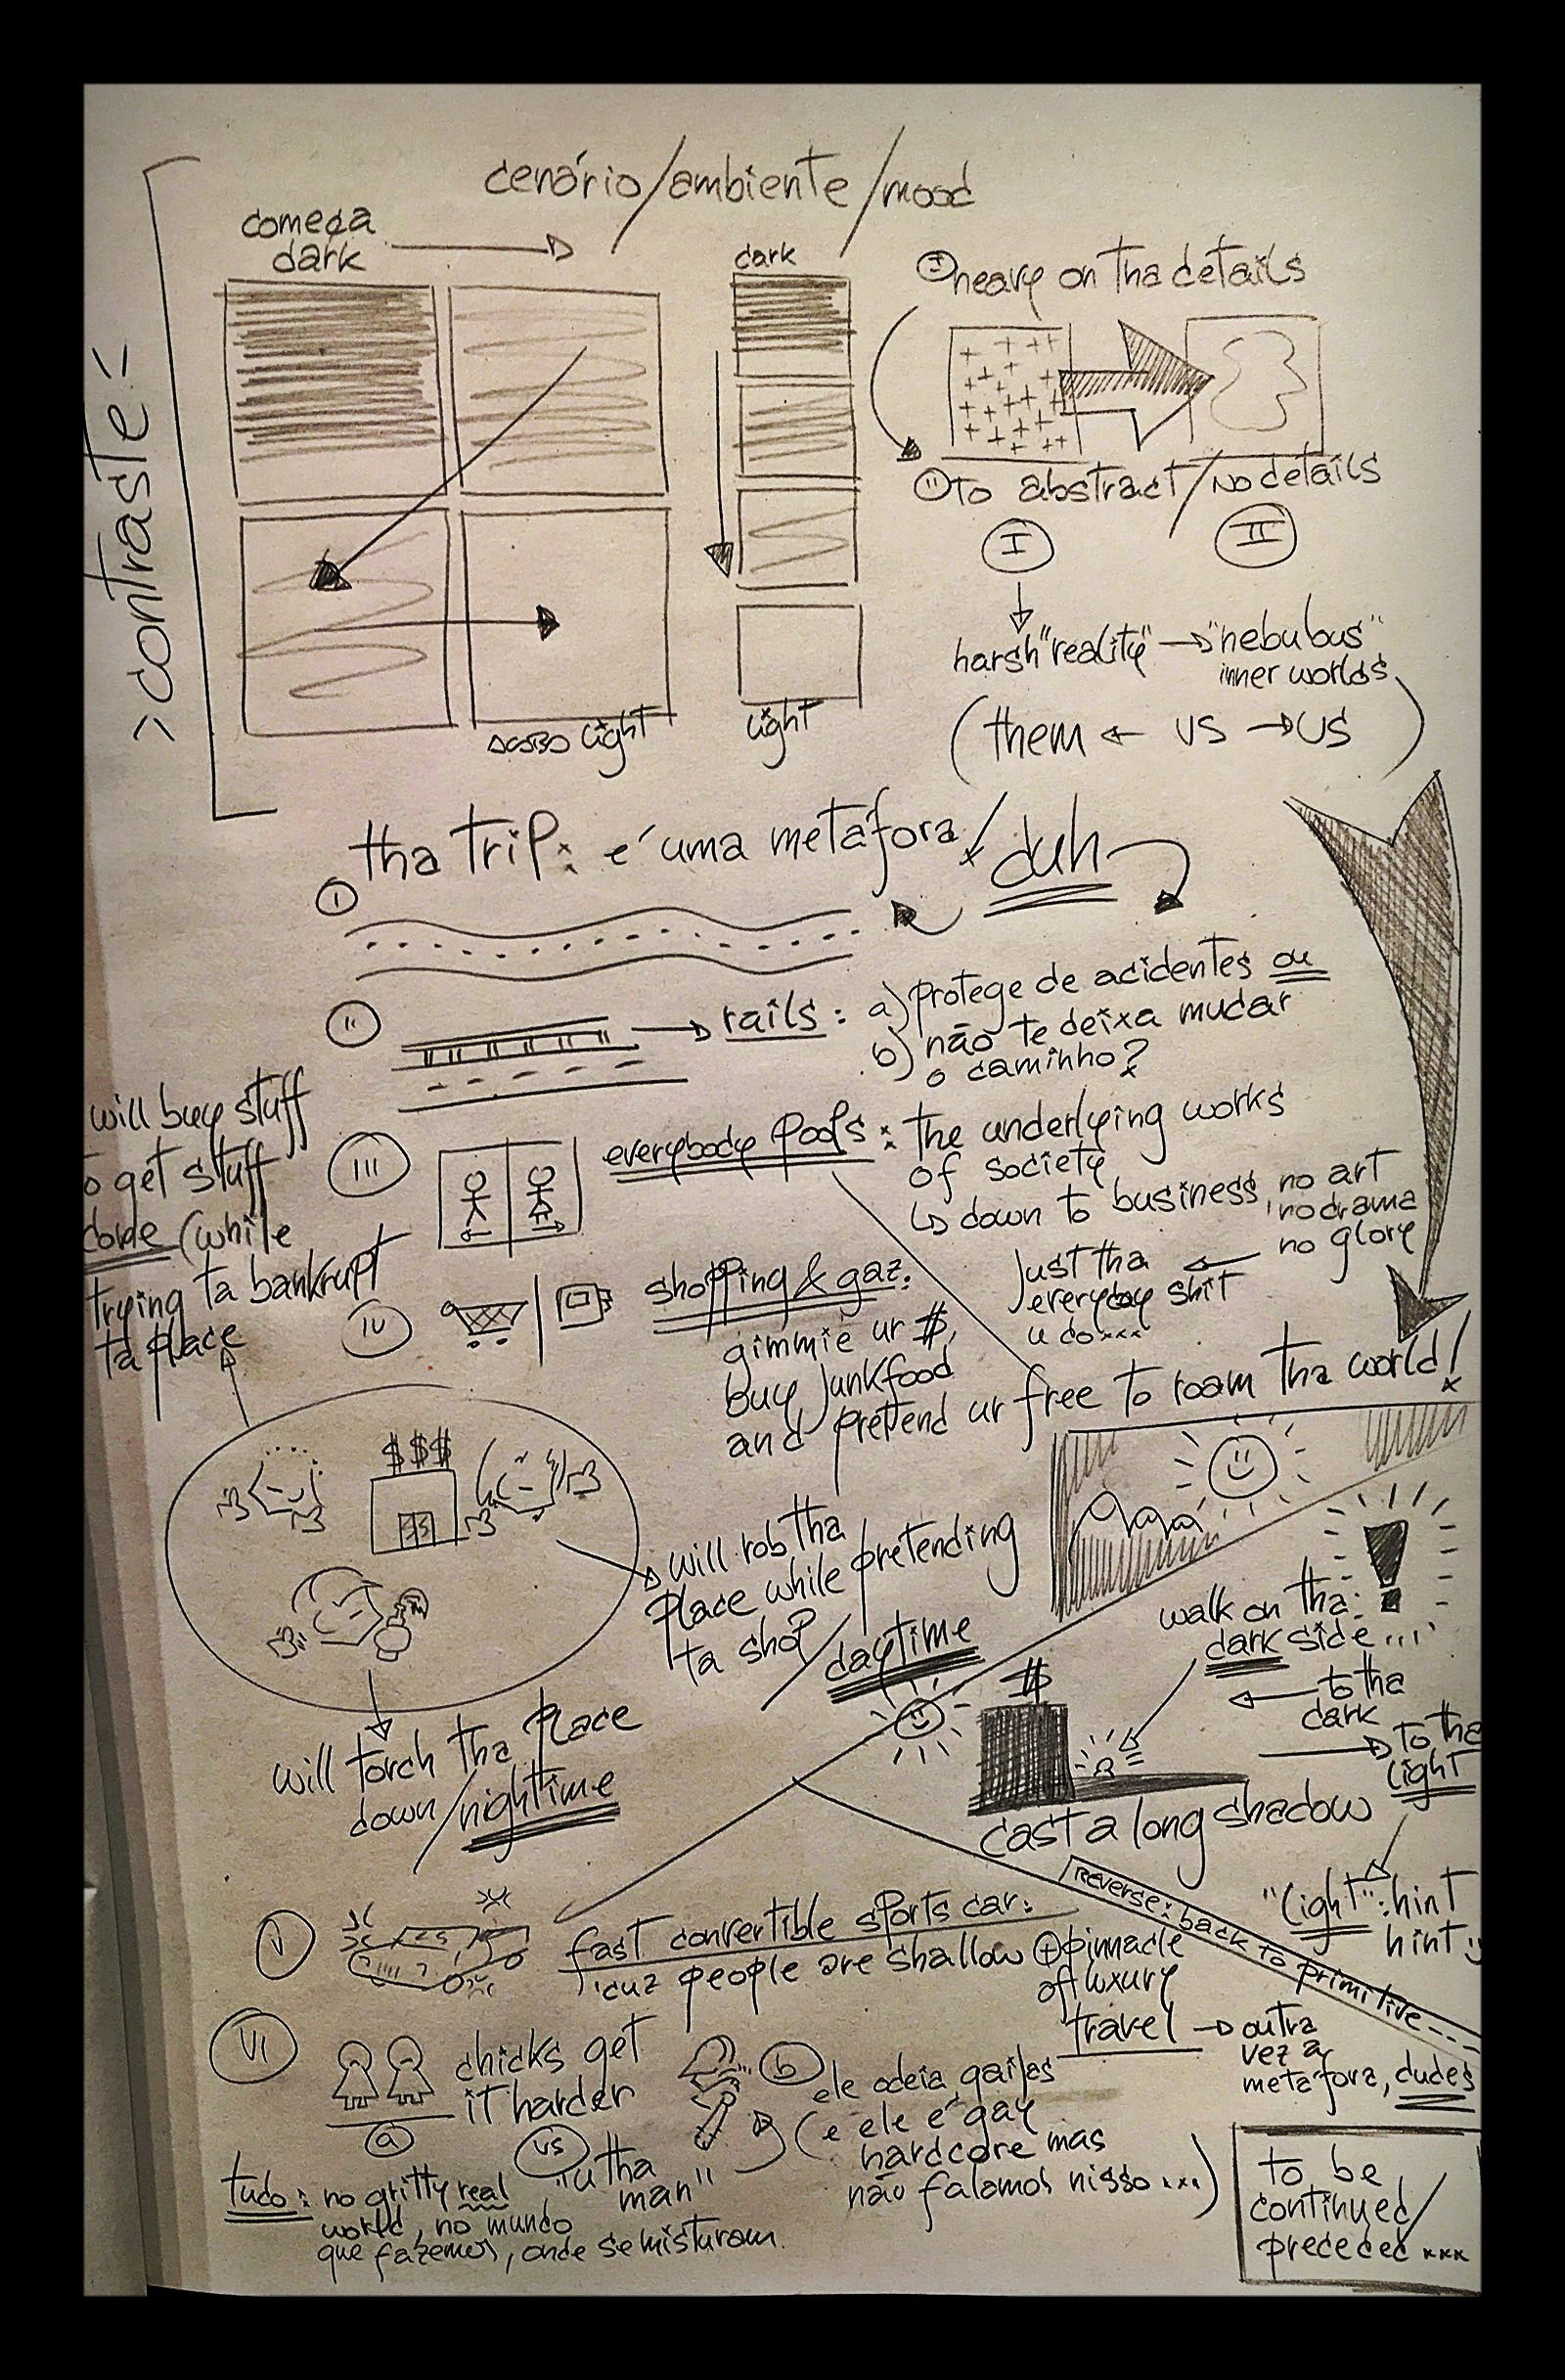 cenário/ambiente/mood
>contraste<
começa
dark
acabo light
dark
light
I heavy on tha details
II to abstract/no details
I
II
harsh "reality" → "nebulous"
inner worlds
(them ← vs → us)
tha trip: é uma metáfora/duh
I
II
rails: a) protege de acidentes ou
b) não te deixa mudar
o caminho?
III
everybody poops: the underlying works
of society
↳ down to business, no art
no drama
no glory
just tha
everyday shit
u do...
IV
shopping & gaz:
gimmie ur $,
buy junkfood
and pretend ur free to roam tha world!
will buy stuff
to get stuff
done (while
trying ta bankrupt
ta place
$$$
will rob tha
place while pretending
ta shop/
daytime
will torch tha place
down/nightime
walk on tha
dark side....
← to tha
dark
→ to the
light
$
cast a long shadow
"light": hint
hint
reverse: back to primitive...
V
fast convertible sports car:
'cuz people are shallow ⊕ pinnacle
of luxury
travel → outra
vez a
metáfora, dudes
VI
chicks get
it harder
a
vs
"u tha
man"
b
ele odeia gajas
(e ele é gay
hardcore mas
não falamos nisso...)
tudo: no gritty real
world, no mundo
que fazemos, onde se misturam.
to be
continued/
preceded...